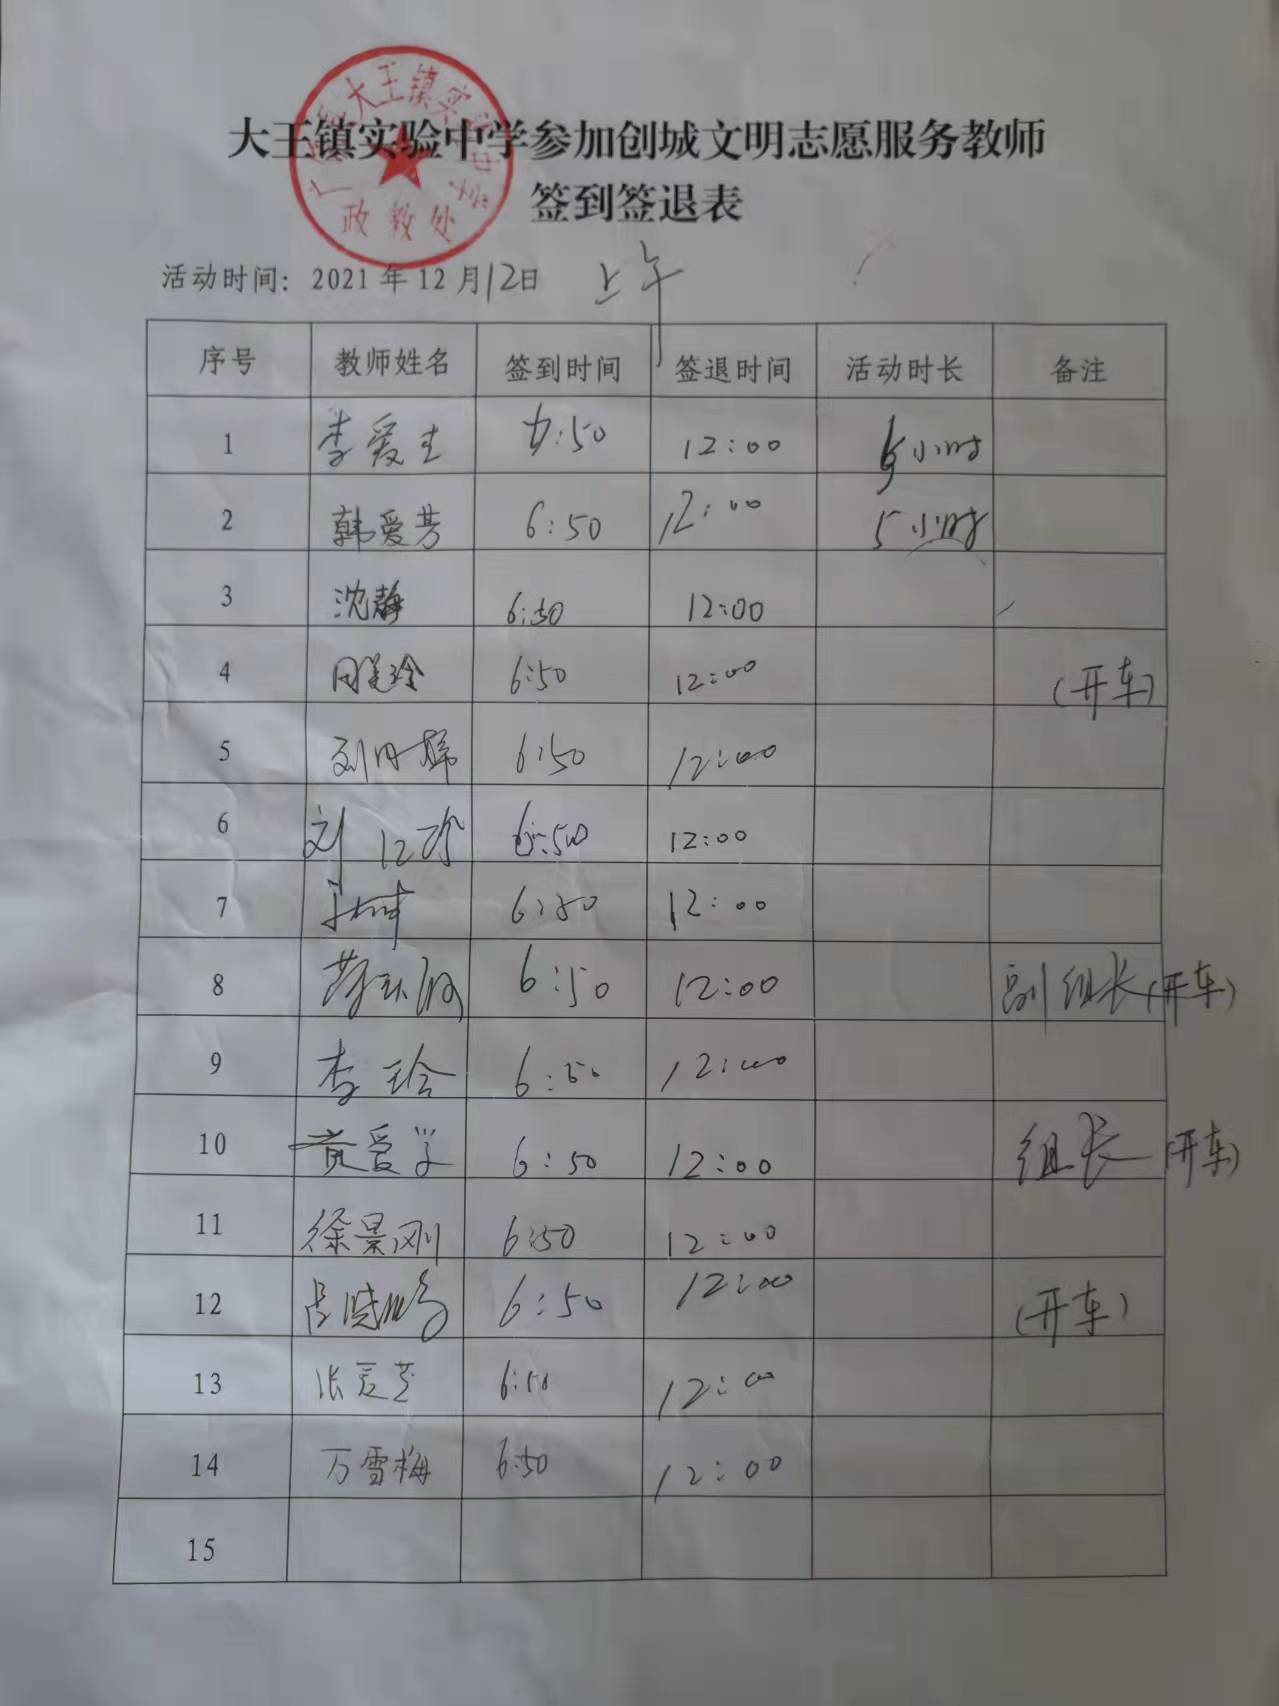 大王镇实验中学参加创城文明志愿服务教师
签到签退表
政教处
活动时间：2021年12月12日 上午
序号 教师姓名 签到时间 签退时间 活动时长 备注
1 李爱 6:50 12:00 5小时
2 韩爱芳 6:50 12:00 5小时
3 沈静 6:50 12:00
4 玲 6:50 12:00 (开车)
5 刘 6:50 12:00
6 刘 6:50 12:00
7 6:50 12:00
8 6:50 12:00 副组长(开车)
9 李玲 6:50 12:00
10 爱学 6:50 12:00 组长(开车)
11 徐景刚 6:50 12:00
12 吕晓鹏 6:50 12:00 (开车)
13 张爱芝 6:50 12:00
14 万雪梅 6:50 12:00
15